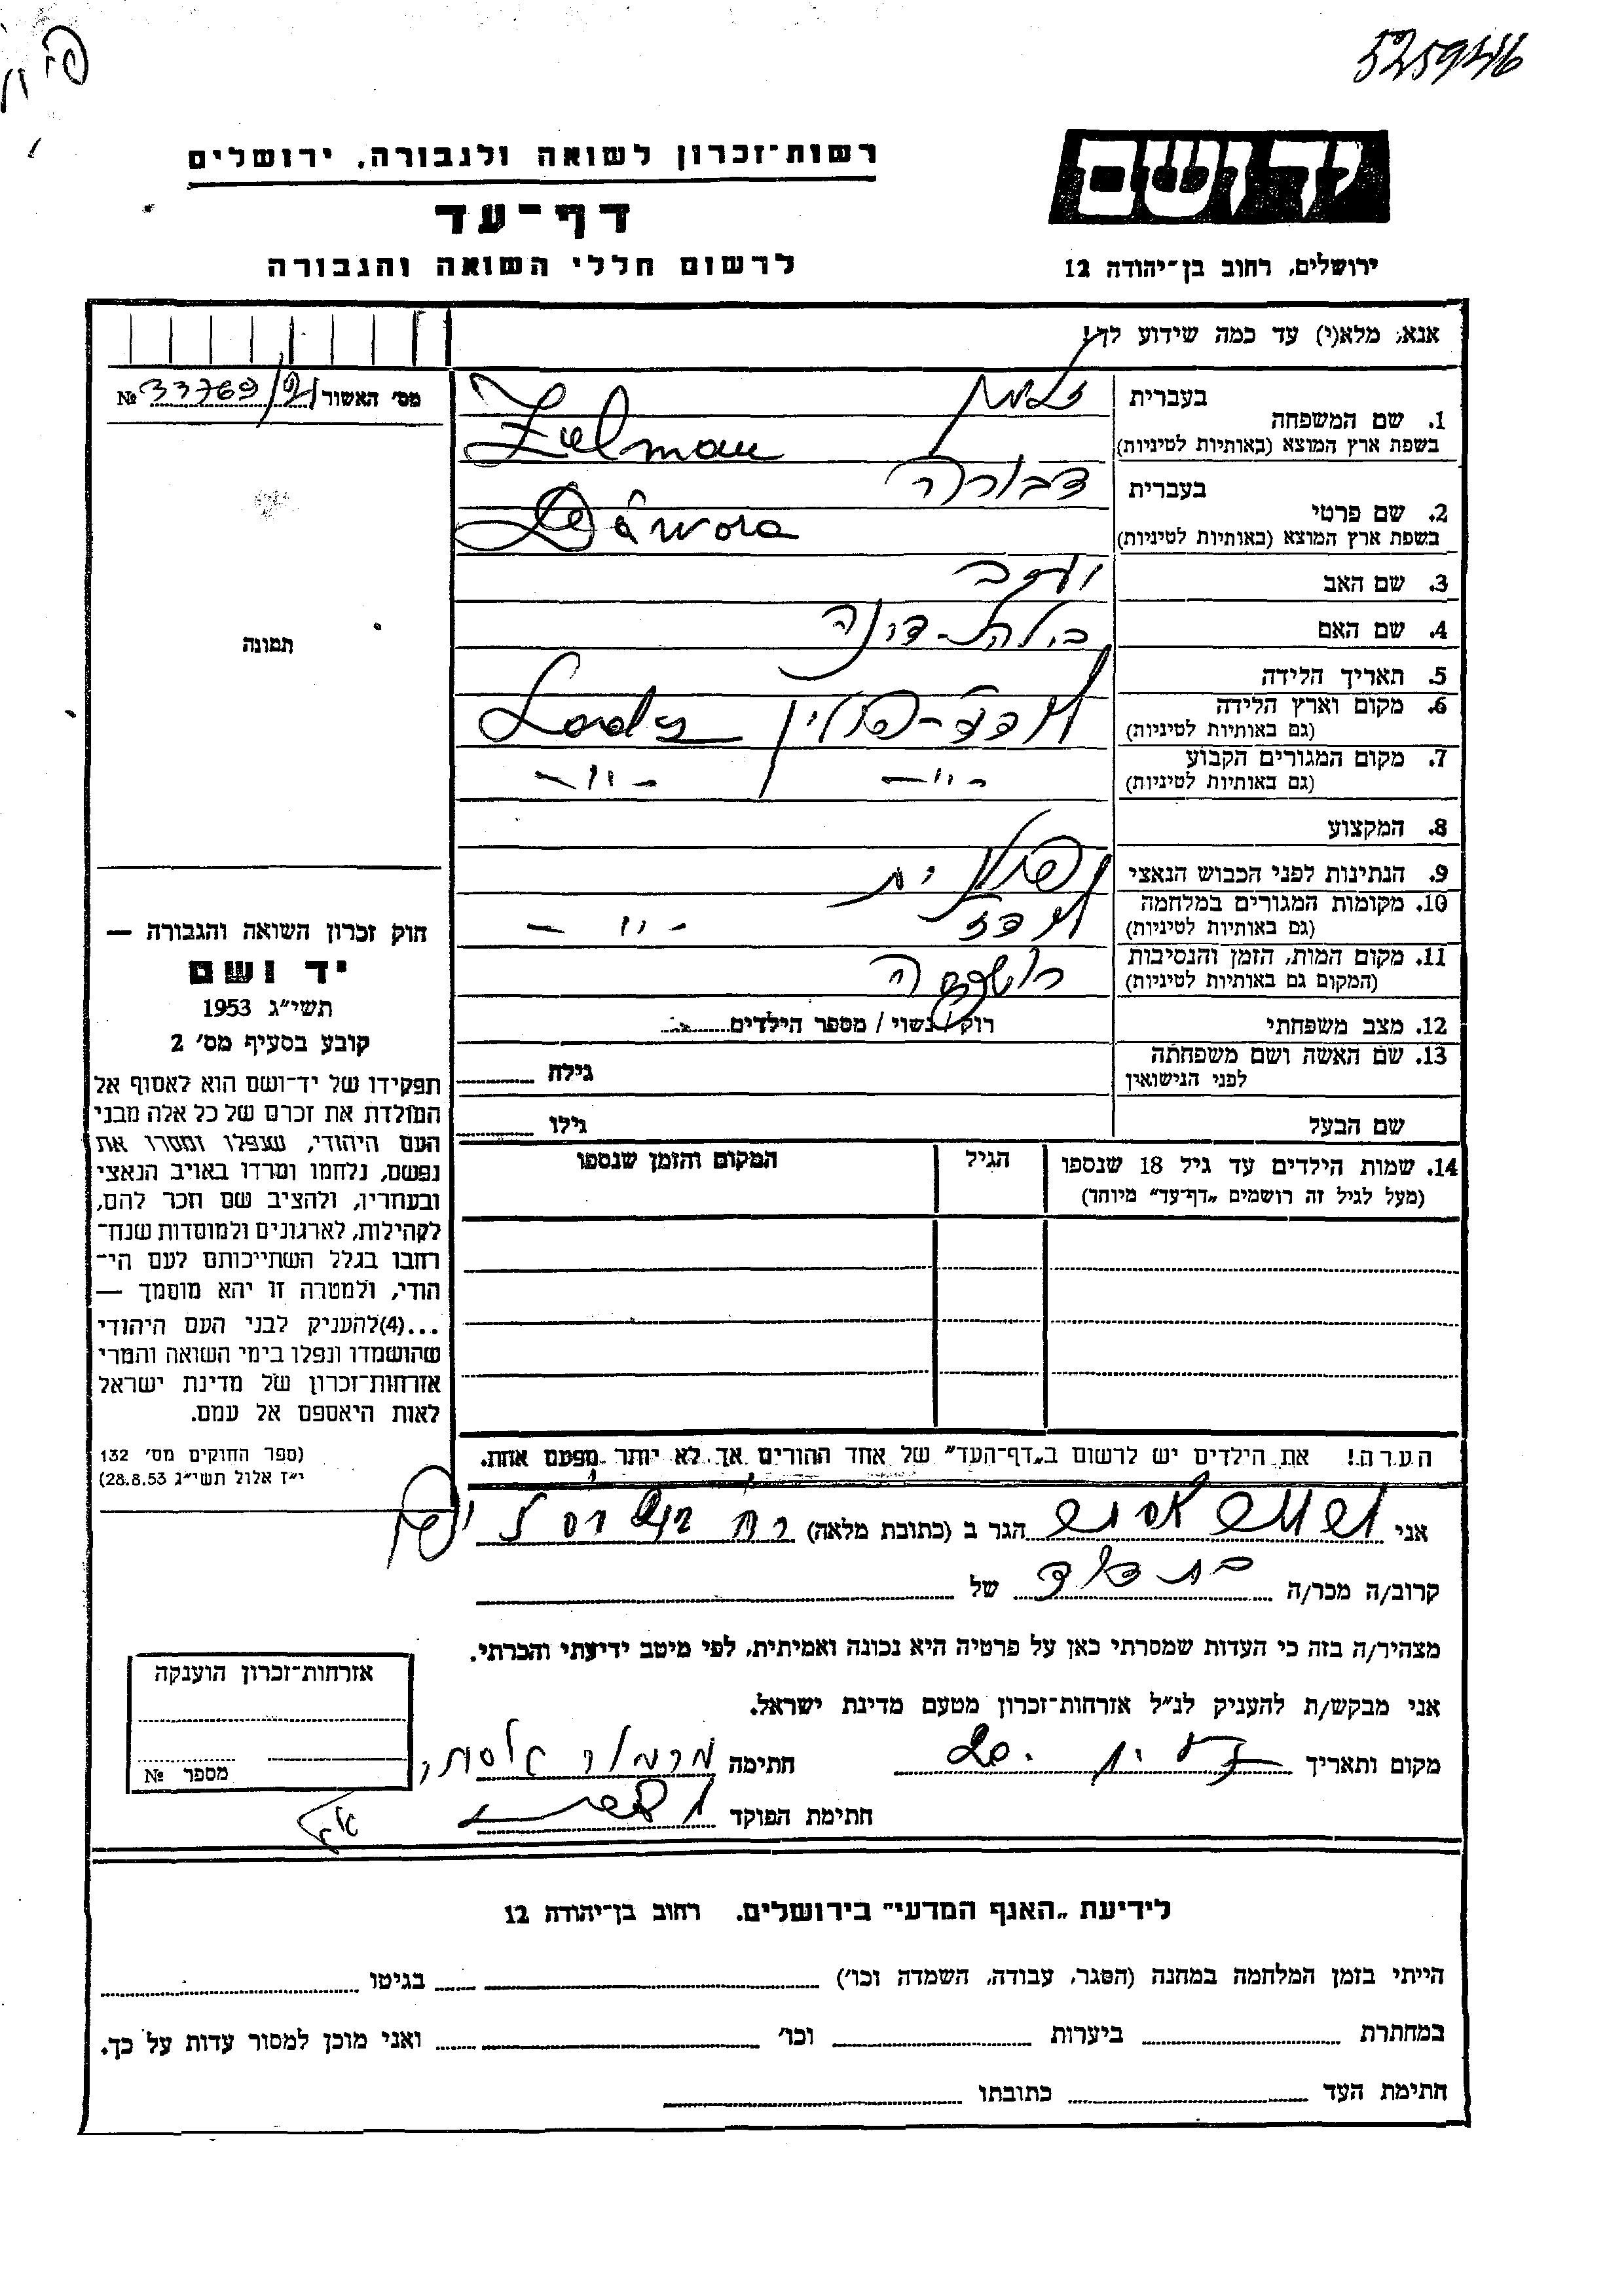 5259416
רשות־זכרון לשואה ולגבורה. ירושלים
יד ושם
דף־עד
לרשום חללי השואה והגבורה
ירושלים, רחוב בן־יהודה 12
אנא, מלא(י) עד כמה שידוע לך!
מס׳ האשור № 33769
1. שם המשפחה
בעברית זלמן
בשפת ארץ המוצא (באותיות לטיניות) Zelman
2. שם פרטי
בעברית דבורה
בשפת ארץ המוצא (באותיות לטיניות) Dáwora
3. שם האב
4. שם האם
תמונה
5. תאריך הלידה
6. מקום וארץ הלידה
(גם באותיות לטיניות) לודז׳־פולין Lodz
7. מקום המגורים הקבוע
(גם באותיות לטיניות) –״– –״–
8. המקצוע
9. הנתינות לפני הכבוש הנאצי פולנית
10. מקומות המגורים במלחמה
(גם באותיות לטיניות) לודז –״–
11. מקום המות, הזמן והנסיבות
(המקום גם באותיות לטיניות)
12. מצב משפחתי רוק / נשוי / מספר הילדים
13. שם האשה ושם משפחתה
לפני הנישואין גילה
שם הבעל גילו
14. שמות הילדים עד גיל 18 שנספו הגיל המקום והזמן שנספו
(מעל לגיל זה רושמים „דף־עד״ מיוחד)
חוק זכרון השואה והגבורה —
יד ושם
תשי״ג 1953
קובע בסעיף מס׳ 2
תפקידו של יד־ושם הוא לאסוף אל
המולדת את זכרם של כל אלה מבני
העם היהודי, שנפלו ומסרו את
נפשם, נלחמו ומרדו באויב הנאצי
ובעוזריו, ולהציב שם וזכר להם,
לקהילות, לארגונים ולמוסדות שנח־
רבו בגלל השתייכותם לעם הי־
הודי, ולמטרה זו יהא מוסמך —
...(4)להעניק לבני העם היהודי
שהושמדו ונפלו בימי השואה והמרי
אזרחות־זכרון של מדינת ישראל
לאות היאספם אל עמם.
(ספר החוקים מס׳ 132
י״ז אלול תשי״ג 28.8.53)
הערה! את הילדים יש לרשום ב„דף־העד״ של אחד ההורים אך לא יותר מפעם אחת.
אני הגר ב (כתובת מלאה)
קרוב/ה מכר/ה בת דוד של
מצהיר/ה בזה כי העדות שמסרתי כאן על פרטיה היא נכונה ואמיתית, לפי מיטב ידיעתי והכרתי.
אני מבקש/ת להעניק לנ״ל אזרחות־זכרון מטעם מדינת ישראל.
מקום ותאריך חתימה
חתימת הפוקד
אזרחות־זכרון הוענקה
מספר №
לידיעת „האגף המדעי״ בירושלים. רחוב בן־יהודה 12
הייתי בזמן המלחמה במחנה (הסגר, עבודה, השמדה וכו׳) בגיטו
במחתרת ביערות וכו׳ ואני מוכן למסור עדות על כך.
חתימת העד כתובתו